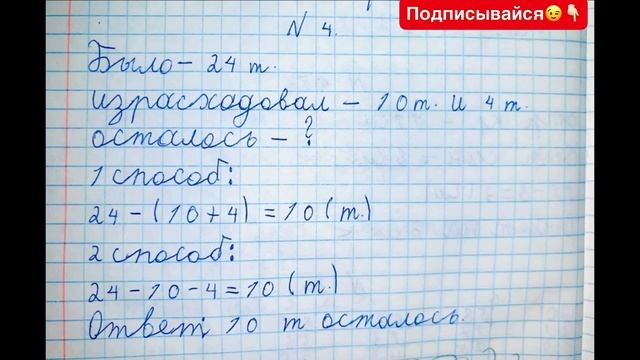 Подписывайся😉👇
№ 4.
Было - 24 т.
израсходовал - 10 т. и 4 т.
осталось - ?
1 способ:
24 - (10 + 4) = 10 (т.)
2 способ:
24 - 10 - 4 = 10 (т.)
Ответ: 10 т осталось.